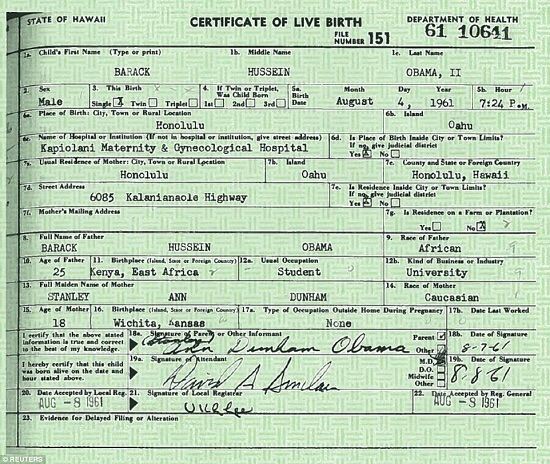 STATE OF HAWAII CERTIFICATE OF LIVE BIRTH DEPARTMENT OF HEALTH
FILE NUMBER 151 61 10641
1a. Child's First Name (Type or print) 1b. Middle Name 1c. Last Name
BARACK HUSSEIN OBAMA, II
2. Sex 3. This Birth 4. If Twin or Triplet, Was Child Born 5a. Birth Date Month Day Year 5b. Hour
Male Single X Twin Triplet 1st 2nd 3rd August 4, 1961 7:24 P.M.
6a. Place of Birth: City, Town or Rural Location 6b. Island
Honolulu Oahu
6c. Name of Hospital or Institution (If not in hospital or institution, give street address) 6d. Is Place of Birth Inside City or Town Limits? If no, give judicial district
Kapiolani Maternity & Gynecological Hospital Yes X No
7a. Usual Residence of Mother: City, Town or Rural Location 7b. Island 7c. County and State or Foreign Country
Honolulu Oahu Honolulu, Hawaii
7d. Street Address 7e. Is Residence Inside City or Town Limits? If no, give judicial district
6085 Kalanianaole Highway Yes X No
7f. Mother's Mailing Address 7g. Is Residence on a Farm or Plantation?
Yes No X
8. Full Name of Father 9. Race of Father
BARACK HUSSEIN OBAMA African 9
10. Age of Father 11. Birthplace (Island, State or Foreign Country) 12a. Usual Occupation 12b. Kind of Business or Industry
25 Kenya, East Africa Student University
13. Full Maiden Name of Mother 14. Race of Mother
STANLEY ANN DUNHAM Caucasian
15. Age of Mother 16. Birthplace (Island, State or Foreign Country) 17a. Type of Occupation Outside Home During Pregnancy 17b. Date Last Worked
18 Wichita, Kansas None
I certify that the above stated information is true and correct to the best of my knowledge. 18a. Signature of Parent or Other Informant Parent Other 18b. Date of Signature
(Stanley) Ann Dunham Obama 8-7-61
I hereby certify that this child was born alive on the date and hour stated above. 19a. Signature of Attendant M.D. D.O. Midwife Other 19b. Date of Signature
David A Sinclair 8-8-61
20. Date Accepted by Local Reg. 21. Signature of Local Registrar 22. Date Accepted by Reg. General
AUG -8 1961 AUG -8 1961
23. Evidence for Delayed Filing or Alteration
© REUTERS